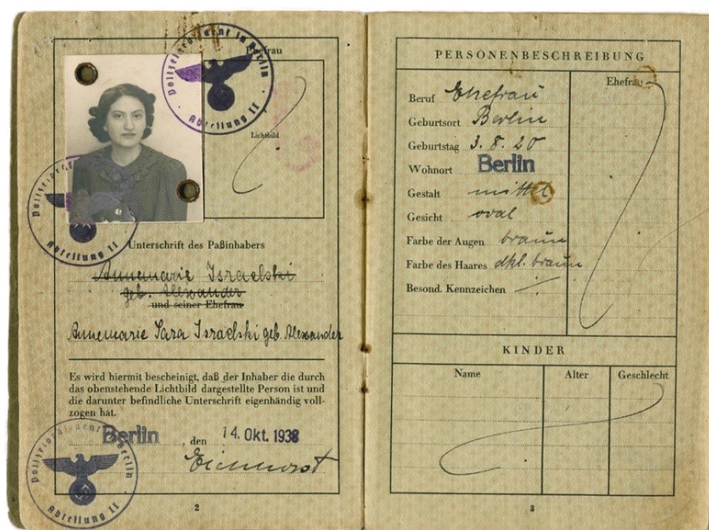 Polizeipräsident in Berlin
Abteilung II
Ehefrau
Lichtbild
Polizeipräsident in Berlin
Abteilung II
Unterschrift des Paßinhabers
Annemarie Israelski
geb. Alexander
und seiner Ehefrau
Annemarie Sara Israelski geb. Alexander
Es wird hiermit bescheinigt, daß der Inhaber die durch
das obenstehende Lichtbild dargestellte Person ist und
die darunter befindliche Unterschrift eigenhändig voll-
zogen hat.
Berlin, den 14. Okt. 1938
Polizeipräsident in Berlin
Abteilung II
2
PERSONENBESCHREIBUNG
Ehefrau
Beruf Ehefrau
Geburtsort Berlin
Geburtstag 3. 8. 20
Wohnort Berlin
Gestalt mittel
Gesicht oval
Farbe der Augen braun
Farbe des Haares dkl. braun
Besond. Kennzeichen
KINDER
Name Alter Geschlecht
3